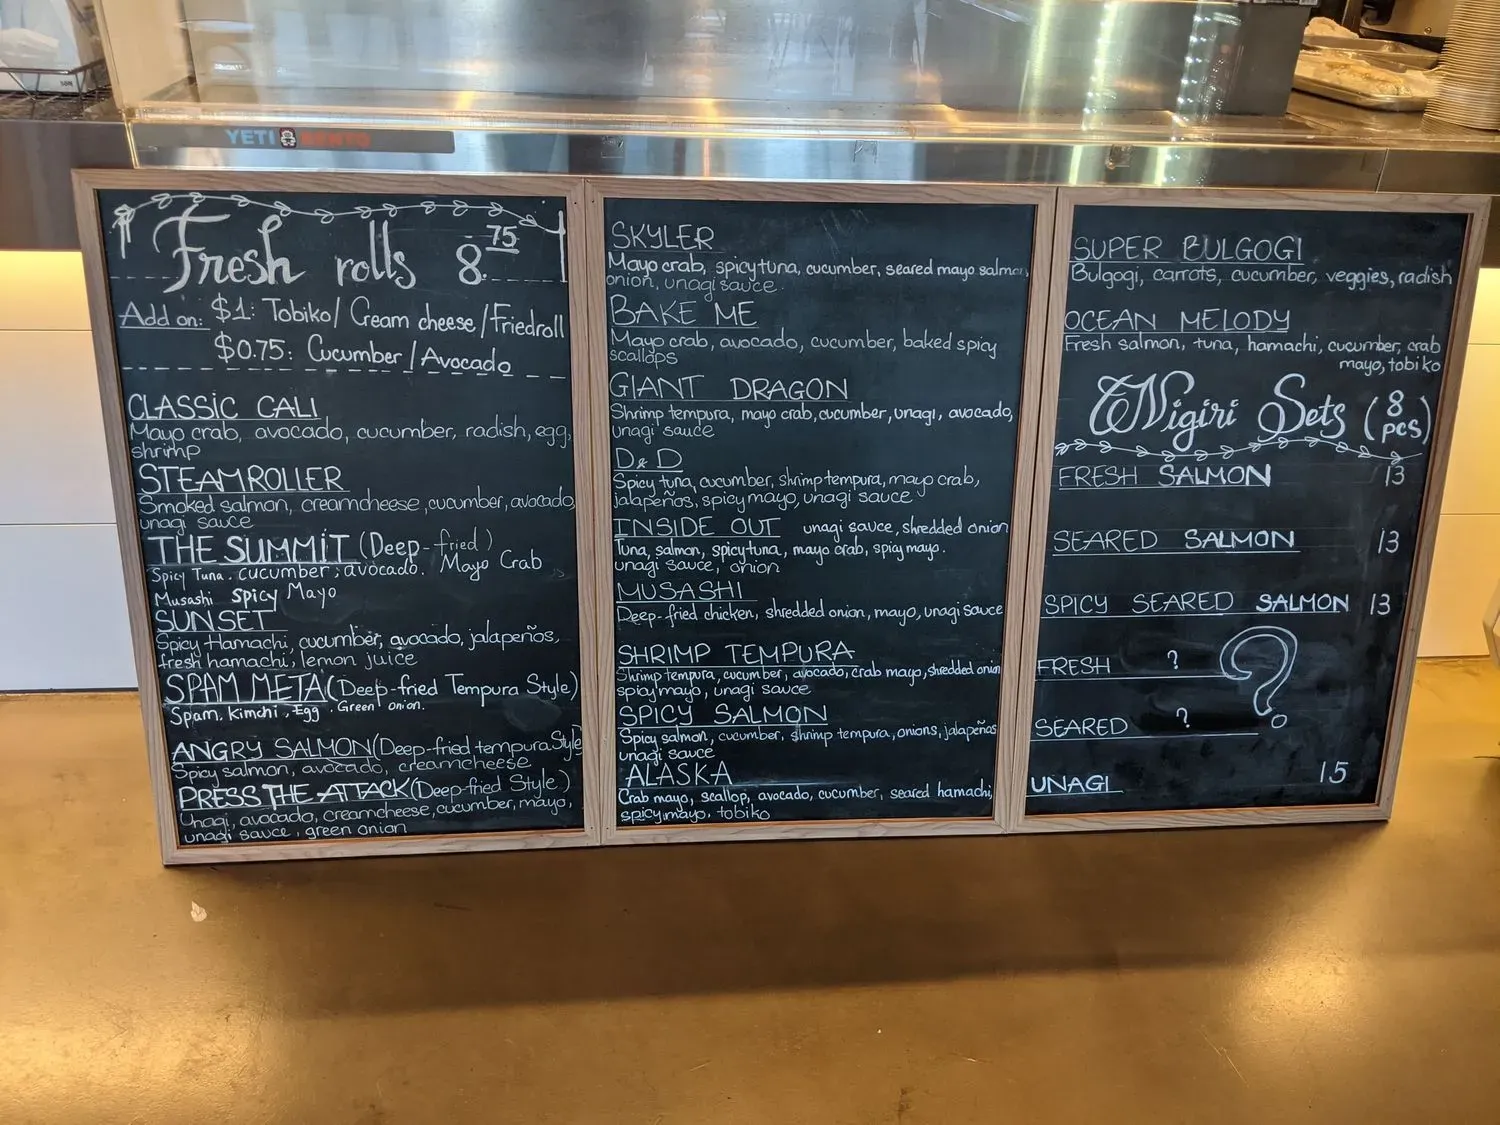 YETI BENTO
Fresh rolls 8.75
Add on: $1: Tobiko/ Cream cheese/Friedroll
$0.75: Cucumber/Avocado
CLASSIC CALI
Mayo crab, avocado, cucumber, radish, egg,
shrimp
STEAMROLLER
Smoked salmon, creamcheese, cucumber, avocado,
unagi sauce
THE SUMMIT (Deep-fried)
Spicy Tuna. cucumber, avocado. Mayo Crab
Musashi Spicy Mayo
SUNSET
Spicy Hamachi, cucumber, avocado, jalapeños,
fresh hamachi, lemon juice
SPAM META (Deep-fried Tempura Style)
Spam, Kimchi, Egg. Green onion.
ANGRY SALMON (Deep-fried tempura Style
Spicy salmon, avocado, creamcheese
PRESS THE ATTACK (Deep-fried Style)
Unagi, avocado, creamcheese, cucumber, mayo,
unagi sauce, green onion
SKYLER
Mayo crab, spicy tuna, cucumber, seared mayo salmon,
onion, unagi sauce.
BAKE ME
Mayo crab, avocado, cucumber, baked spicy
scallops
GIANT DRAGON
Shrimp tempura, mayo crab, cucumber, unagi, avocado,
unagi sauce
D&D
Spicy tuna, cucumber, shrimp tempura, mayo crab,
jalapeños, spicy mayo, unagi sauce
INSIDE OUT unagi sauce, shredded onion
Tuna, salmon, spicy tuna, mayo crab, spicy mayo.
unagi sauce, onion
MUSASHI
Deep-fried chicken, shredded onion, mayo, unagi sauce
SHRIMP TEMPURA
Shrimp tempura, cucumber, avocado, crab mayo, shredded onion
spicy mayo, unagi sauce
SPICY SALMON
Spicy salmon, cucumber, shrimp tempura, onions, jalapeños
unagi sauce
ALASKA
Crab mayo, scallop, avocado, cucumber, seared hamachi,
spicy mayo, tobiko
SUPER BULGOGI
Bulgogi, carrots, cucumber, veggies, radish
OCEAN MELODY
Fresh salmon, tuna, hamachi, cucumber, crab
mayo, tobiko
Nigiri Sets (8 pcs)
FRESH SALMON 13
SEARED SALMON 13
SPICY SEARED SALMON 13
FRESH ? ?
SEARED ?
UNAGI 15